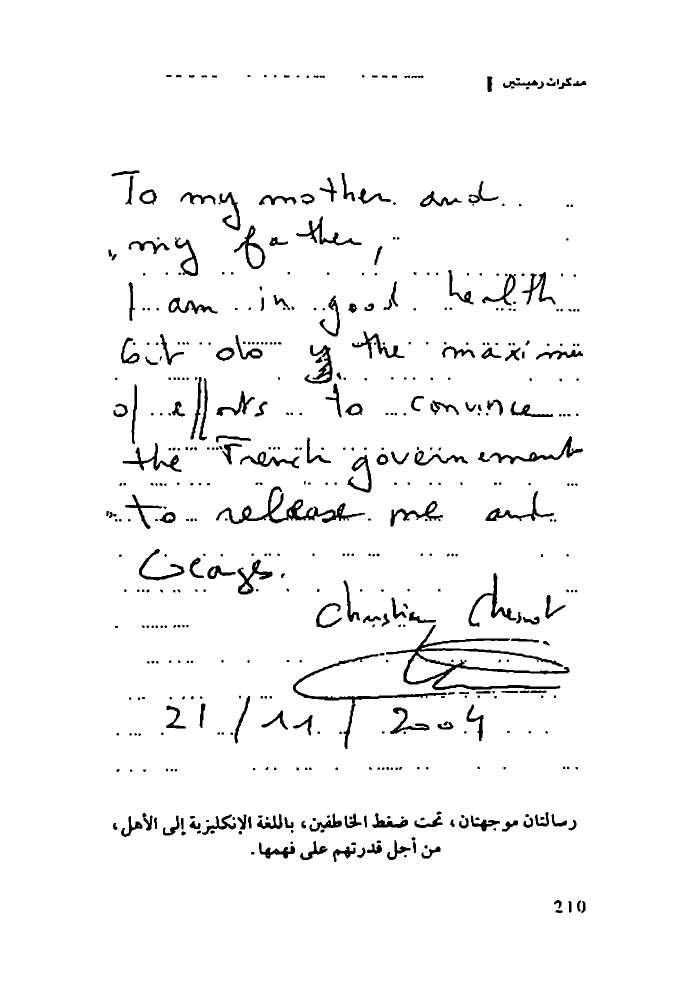 مذكرات رهينتين
To my mother and
my father,
I am in good health
but do the maximu
of efforts to convince
the French government
to release me and
Georges.
Christian Chesnot
21/11/2004
رسالتان موجهتان، تحت ضغط الخاطفين، باللغة الإنكليزية إلى الأهل،
من أجل قدرتهم على فهمها.
210